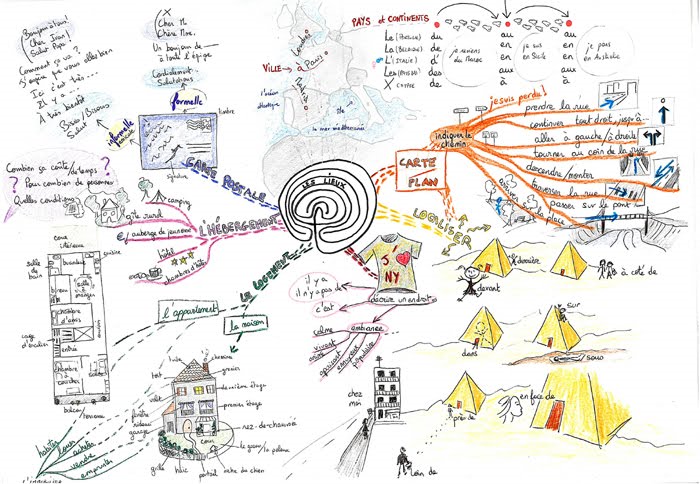 Bonjour à tous!
Cher Ivan!
Salut Papa
Comment ça va?
J'espère que vous allez bien
Ici c'est très...
Il y a
A très bientôt
Bises / Bisous
Salut
informelle
X
Cher M.
Chère Mme.
Un bonjour de
Cordialement
Salutations
formelle
timbre
signature
CARTE POSTALE
PAYS et CONTINENTS
Le (FRANCE) du au au
La (BELGIQUE) de en en
L' (ITALIE) d' en en
Les (PAYS BAS) des aux aux
X de à à
je reviens du Maroc
je suis en Sicile
je pars en Australie
VILLE → à
Londres
Paris
l'océan atlantique
île
la mer méditerranée
LES LIEUX
CARTE
PLAN
indiquer le chemin
je suis perdu!
prendre la rue
continuer tout droit, jusqu'à...
aller à gauche/à droite
tourner au coin de la rue
descendre/monter
traverser la rue
passer sur le pont
la place
LOCALISER
derrière
devant
à côté de
dans
sur
sous
près de
en face de
loin de
Combien ça coûte?
Pour combien de personnes?
Quelles conditions?
L'HÉBERGEMENT
camping
gîte rural
auberge de jeunesse
hôtel
chambre d'hôte
J' ♥
NY
décrire un endroit
il y a
il n'y a pas de
c'est
ambiance
calme
vivant
animé
populaire
chez moi
LE LOGEMENT
l'appartement
la maison
cour intérieure
salle de bain
cuisine
bureau
salle à manger
chambre d'amis
entrée
cage d'escalier
chambre à coucher
salon
balcon/terrasse
habiter
louer
acheter
vendre
emprunter
tuile
cheminée
toit
grenier
deuxième étage
premier étage
volet
fenêtre
rideau
garage
rez-de-chaussée
cour
le gazon / la pelouse
grille
haie
portail
niche du chien